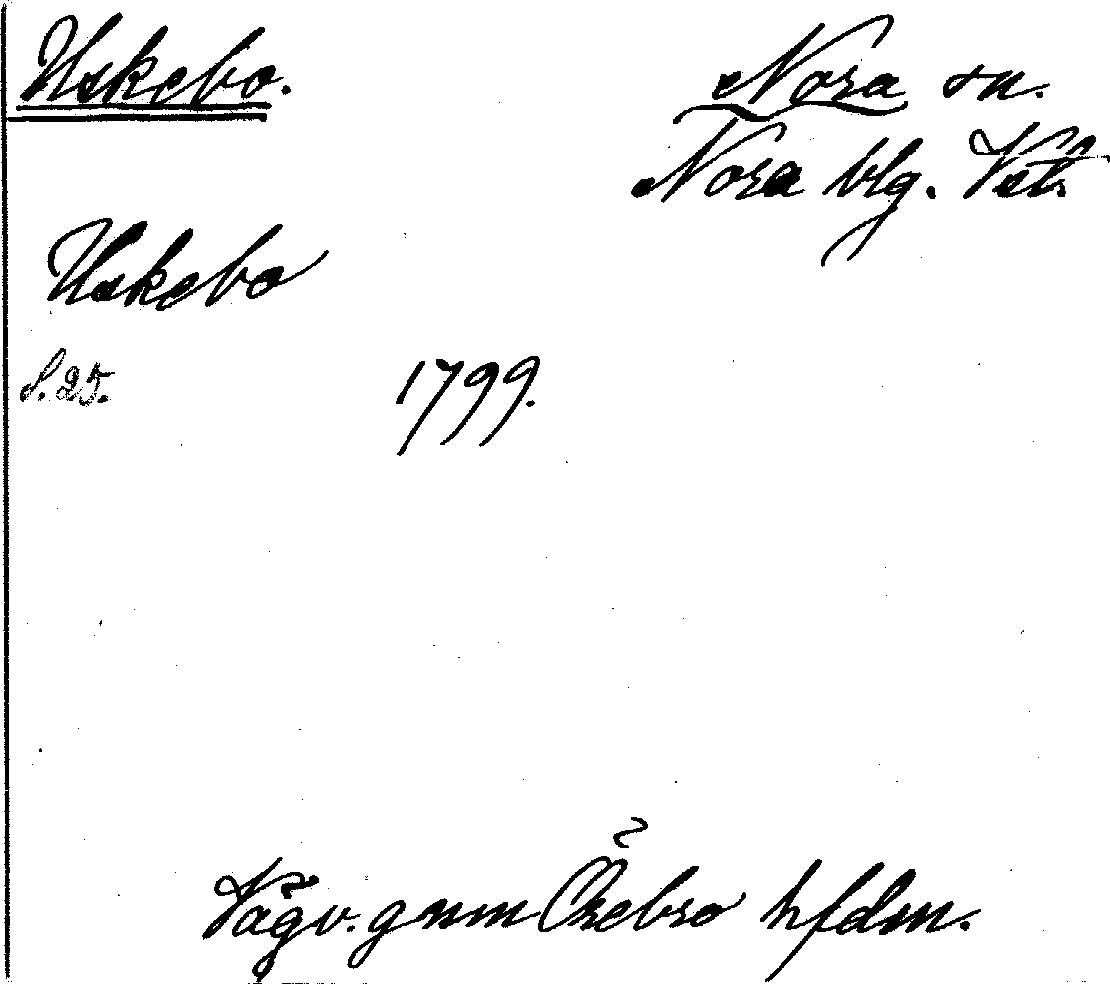 Uskebo.
Nora sn.
Nora blg. Vstl.
Uskebo
S. 25.
1799.
Vägv. gnm Örebro hfdm.